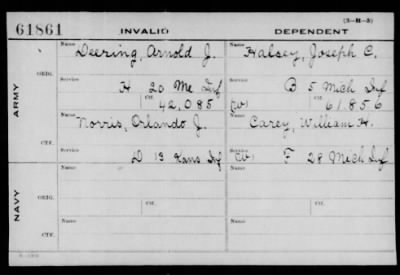 (3-H-5)
61861 INVALID DEPENDENT
Name Deering, Arnold J. Name Halsey, Joseph C.
ORIG. Service H 20 Me Inf Service B 5 Mich Inf
Ctf. 42,085 (W) Ctf. 61,856
ARMY
Name Norris, Orlando J. Name Carey, William H.
CTF. Service D 13 Kans Inf Service (W) F 28 Mich Inf
Name Name
ORIG. Service Service
Ctf. Ctf.
NAVY
Name Name
CTF. Service Service